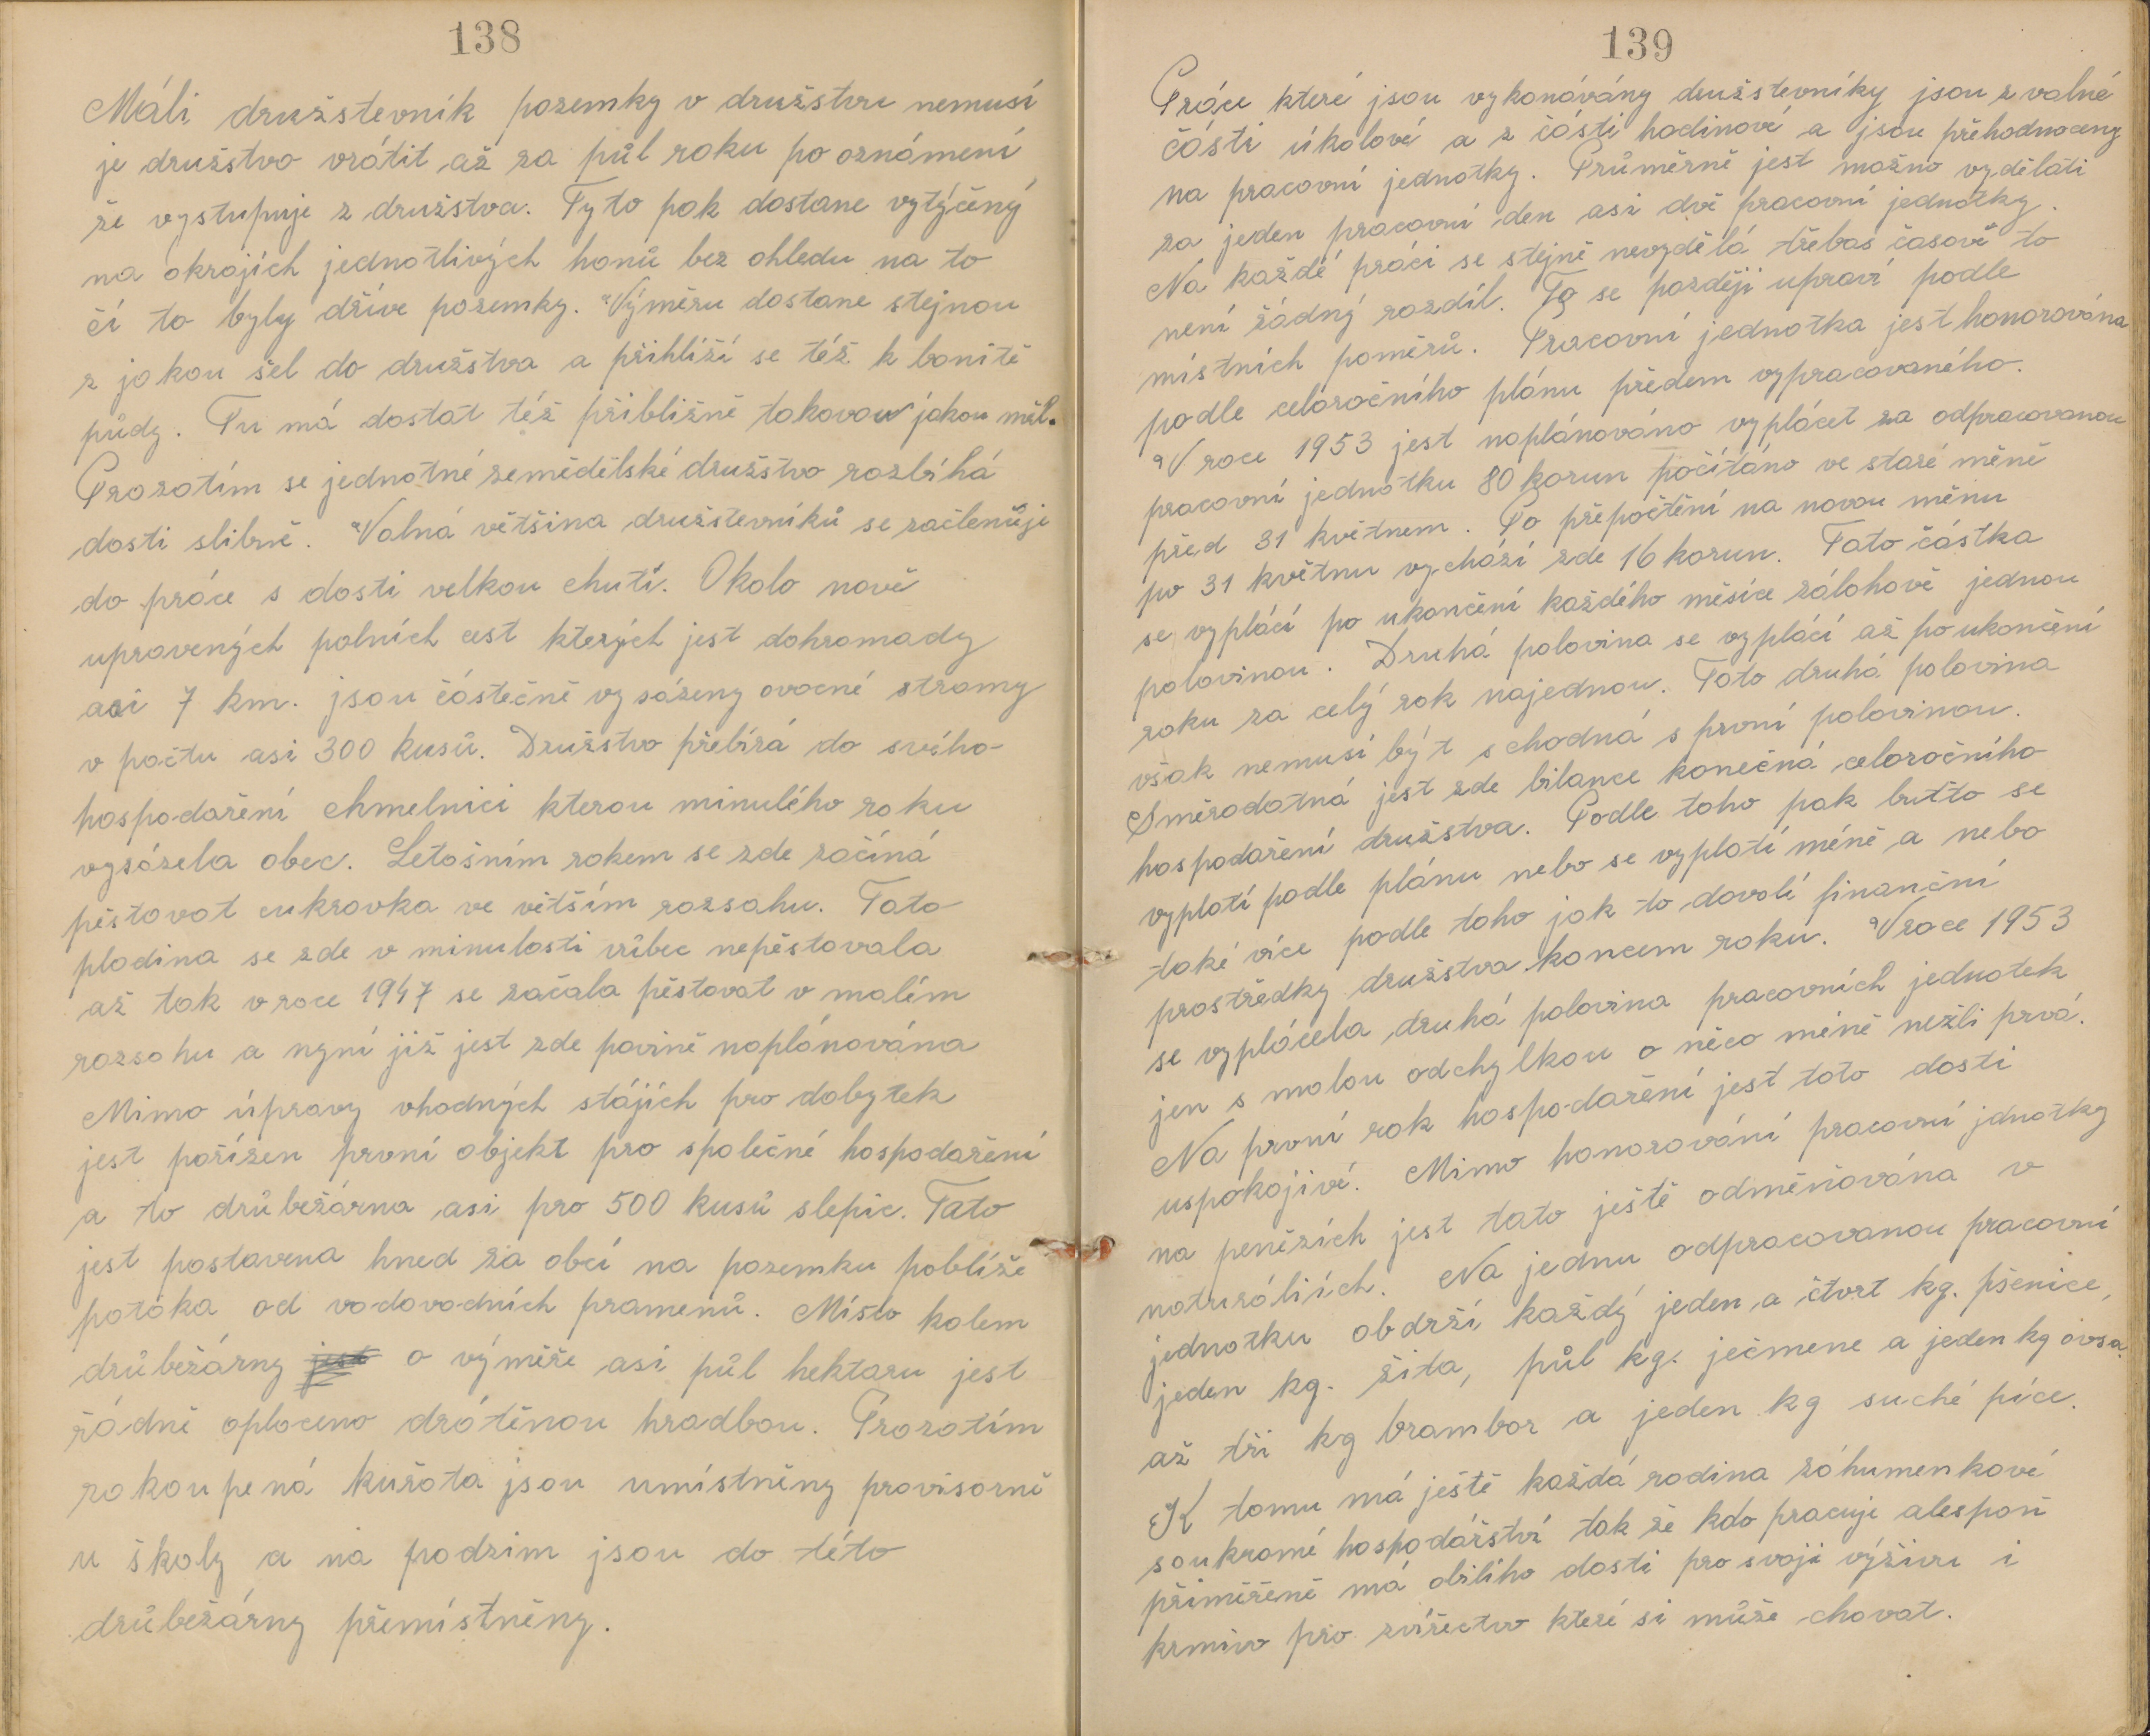 138
Máli družstevník pozemky v družstvu nemusí
je družstvo vrátit až za půl roku po oznámení
že vystupuje z družstva. Tyto pak dostane vytýčený
na okrajích jednotlivých honů bez ohledu na to
čí to byly dříve pozemky. Výměru dostane stejnou
z jakou šel do družstva a přihlíží se též k bonitě
půdy. Tu má dostat též přibližně takovou jakou měl.
Prozatím se jednotné zemědělské družstvo rozbíhá
dosti slibně. Valná většina družstevníků se začleňuje
do práce s dosti velkou chutí. Okolo nově
upravených polních cest kterých jest dohromady
asi 7 km. jsou částečně vysázeny ovocné stromy
v počtu asi 300 kusů. Družstvo přebírá do svého
hospodaření chmelnici kterou minulého roku
vysázela obec. Letošním rokem se zde začíná
pěstovat cukrovka ve větším rozsahu. Tato
plodina se zde v minulosti vůbec nepěstovala
až tak v roce 1947 se začala pěstovat v malém
rozsahu a nyní již jest zde povině naplánována
Mimo úpravy vhodných stájích pro dobytek
jest pořízen první objekt pro společné hospodaření
a to drůbežárna asi pro 500 kusů slepic. Tato
jest postavena hned za obcí na pozemku poblíže
potoka od vodovodních pramenů. Místo kolem
drůbežárny jest o výměře asi půl hektaru jest
řádně oploceno drátěnou hradbou. Prozatím
zakoupená kuřata jsou umístněny provisorně
u školy a na podzim jsou do této
drůbežárny přemístněny.
139
Práce které jsou vykonávány družstevníky jsou z valné
části úkolové a z části hodinové a jsou přehodnoceny
na pracovní jednotky. Průměrně jest možno vydělati
za jeden pracovní den asi dvě pracovní jednotky.
Na každé práci se stejně nevydělá třebas časově to
není žádný rozdíl. To se později upraví podle
místních poměrů. Pracovní jednotka jest honorována
podle celoročního plánu předem vypracovaného.
V roce 1953 jest naplánováno vyplácet za odpracovanou
pracovní jednotku 80 korun počítáno ve staré měně
před 31 květnem. Po přepočtění na novou měnu
po 31 květnu vychází zde 16 korun. Tato částka
se vyplácí po ukončení každého měsíce zálohově jednou
polovinou. Druhá polovina se vyplácí až po ukončení
roku za celý rok najednou. Tato druhá polovina
však nemusí být schodná s první polovinou.
Směrodatná jest zde bilance konečná celoročního
hospodaření družstva. Podle toho pak buďto se
vyplatí podle plánu nebo se vyplatí méně a nebo
také více podle toho jak to dovolí finanční
prostředky družstva koncem roku. V roce 1953
se vyplácela druhá polovina pracovních jednotek
jen s malou odchylkou o něco méně nežli prvá.
Na první rok hospodaření jest toto dosti
uspokojivé. Mimo honorování pracovní jdnotky
na penězích jest tato ještě odměňována v
naturáliích. Na jednu odpracovanou pracovní
jednotku obdrží každý jeden a čtvrt kg. pšenice,
jeden kg. žita, půl kg. ječmene a jeden kg ovsa
až tři kg brambor a jeden kg suché píce.
K tomu má ještě každá rodina záhumenkové
soukromé hospodářství tak že kdo pracuje alespoň
přiměřeně má obilího dosti pro svoji výživu i
krmivo pro zvířectvo které si může chovat.